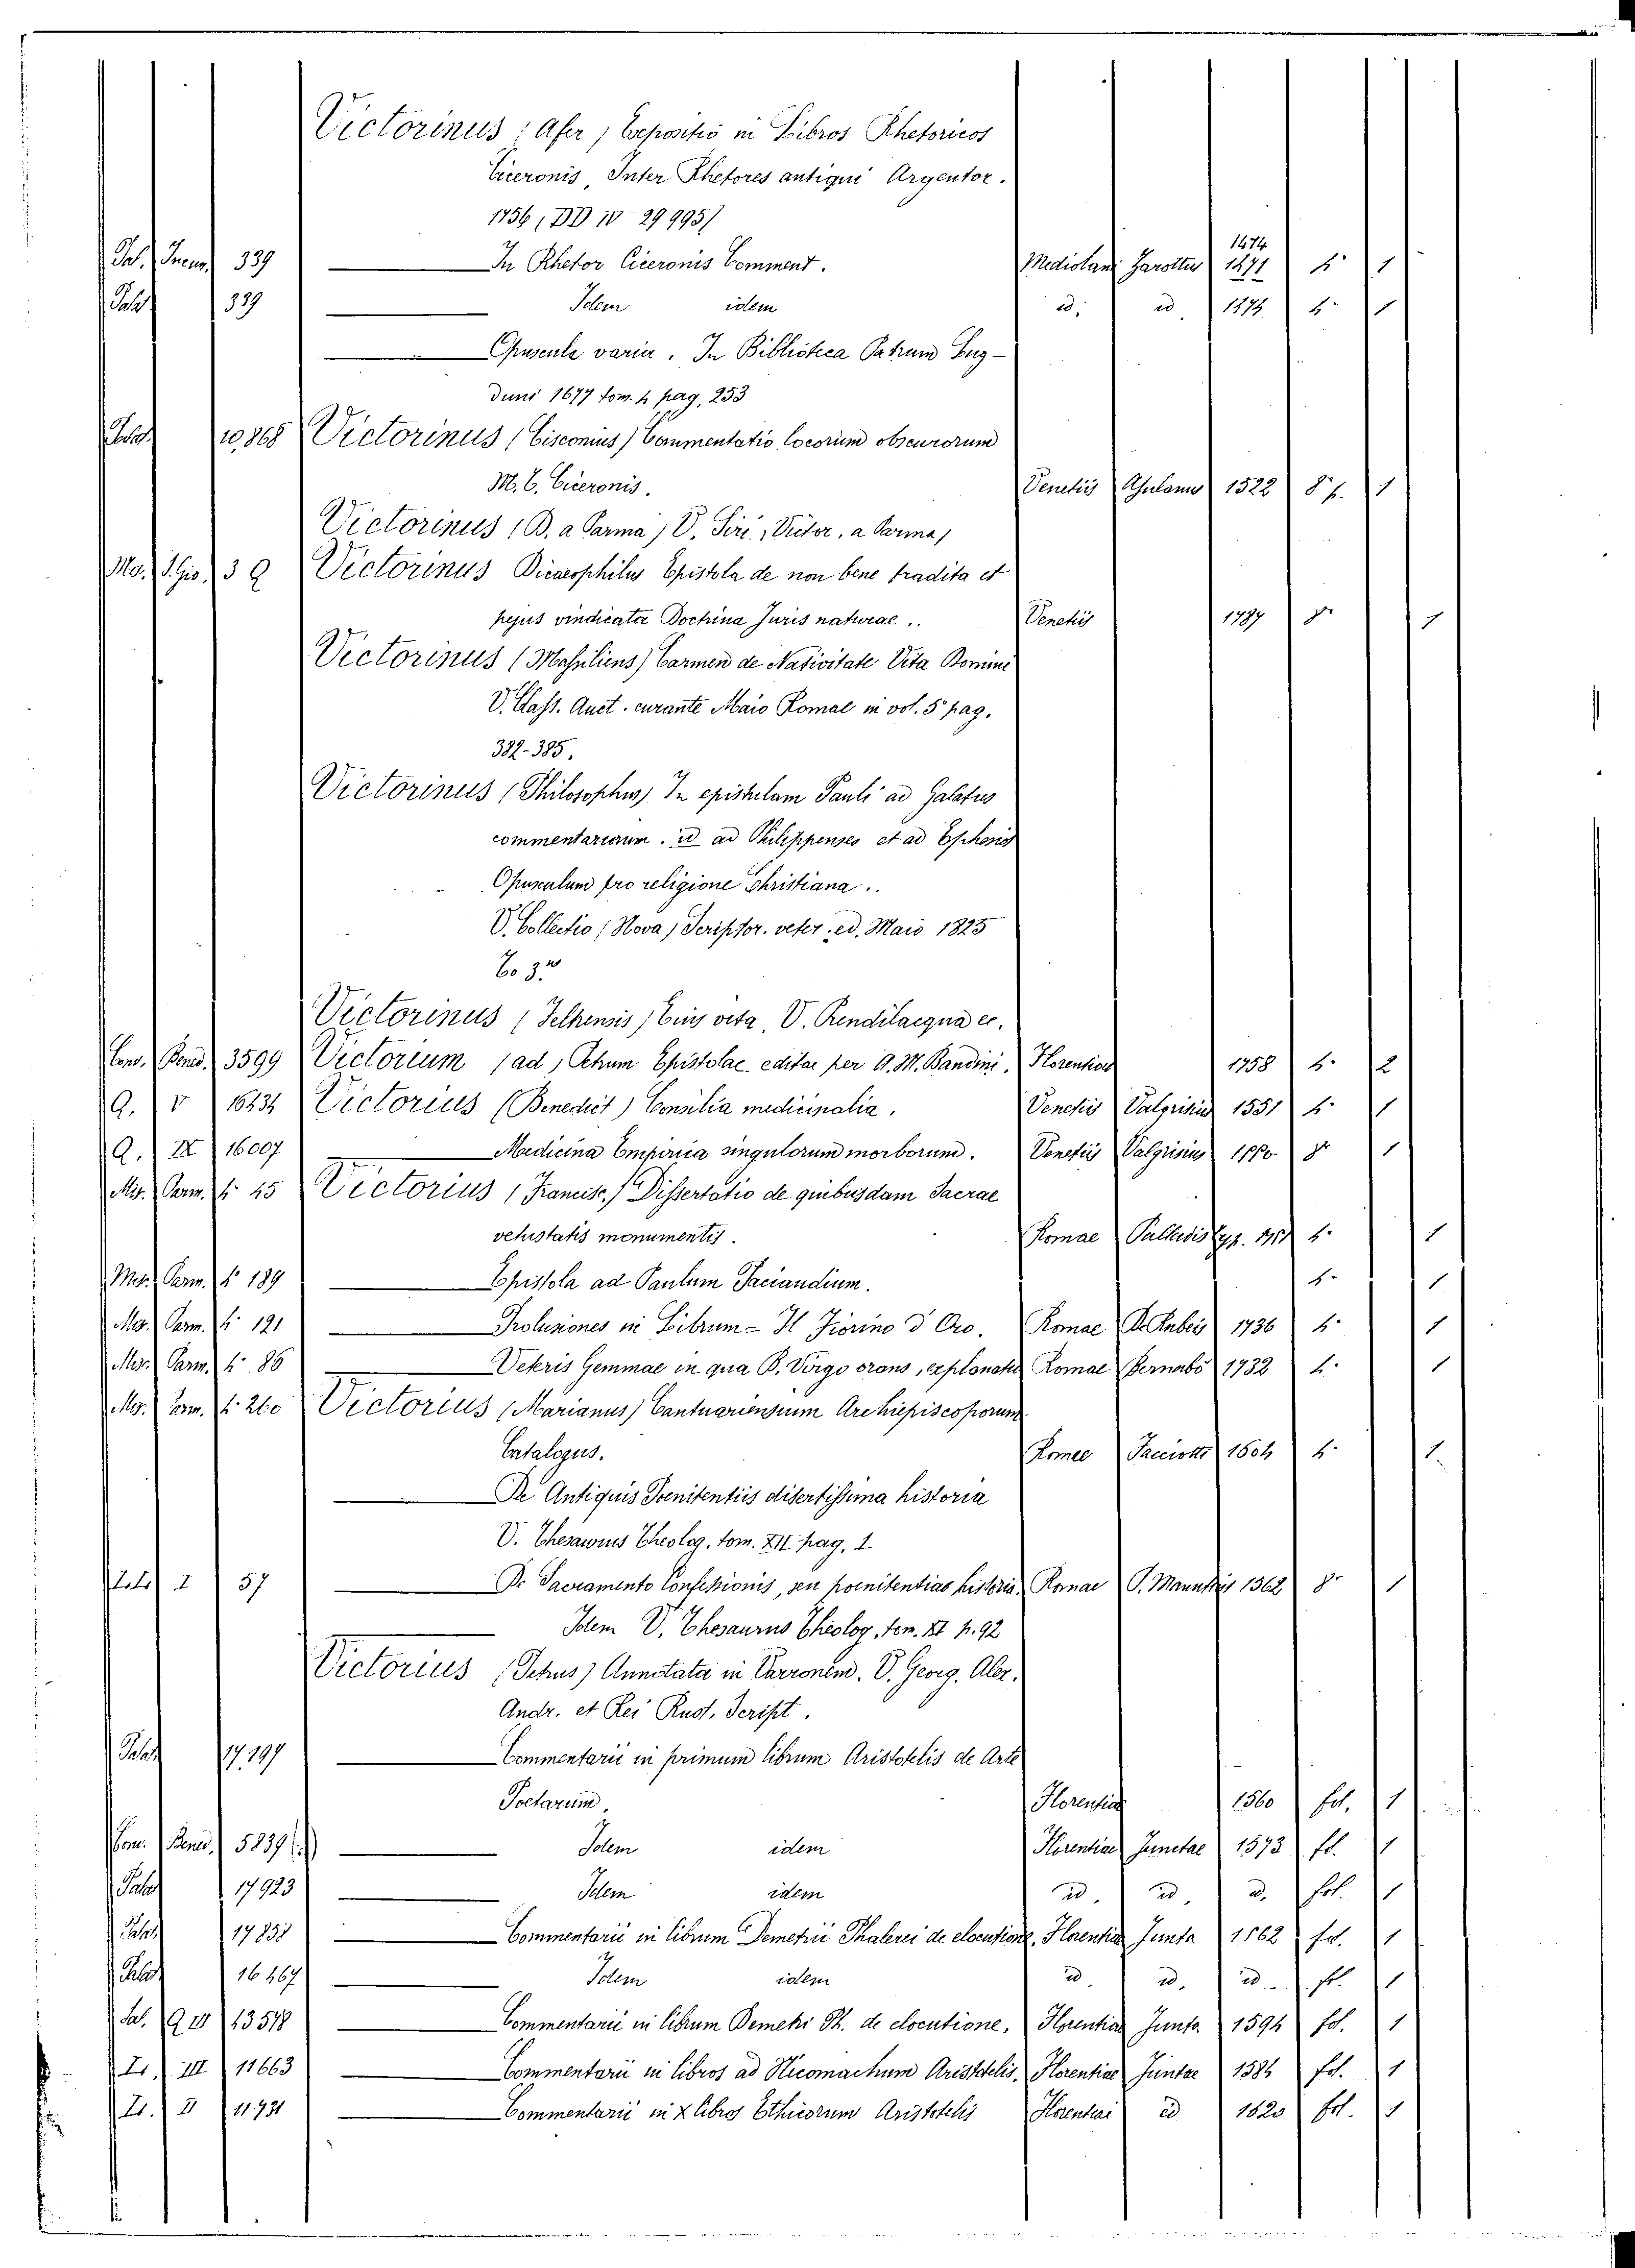 Victorinus (Afer) Expositio in Libros Rhetoricos
Ciceronis, Inter Rhetores antiqui Argentor.
1756, DD IV 29995)
1474
Pal. Incun. 339 In Rhetor Ciceronis Comment. Mediolani Zarottus 1471 4° 1
Pal. 339 Idem idem id. id. 1474 4° 1
Opuscula varia. In Biblioteca Patrum Lug-
duni 1677 tom. 4 pag. 253
Palat. 10,868 Victorinus (Cisconius) Commentatio locorum obscurorum
M. C. Ciceronis. Venetiis Asulanus 1522 8° p. 1
Victorinus (B. a Parma) V. Siri, Victor, a Parma)
Mo. S. Gio. 3 Q Victorinus Dicaeophilus Epistola de non bene tradita et
pejus vindicata Doctrina Juris naturae.. Venetiis 1787 8° 1
Victorinus (Massiliens) Carmen de Nativitate Vita Domini
V. Class. Auct. curante Maio Romae in vol. 5° pag.
382-385.
Victorinus (Philosophus) In epistulam Pauli ad Galatus
commentariorum. id ad Philippenses et ad Ephesis
Opusculum pro religione Christiana..
V. Collectio (Nova) Scriptor. veter. ed. Maio 1825
To 3°
Victorinus (Feltrensis) Eius vita, V. Prendilacqua ec.
Conv. Bened. 3599 Victorium (ad) Petrum Epistolae editae per A. M. Bandini. Florentiae 1758 4° 2
Q. V 16234 Victorius (Benedict) Consilia medicinalia. Venetiis Valgrisius 1551 4° 1
Q. IX 16007 Medicina Empirica singulorum morborum. Venetiis Valgrisius 8° 1
Mis. Parm. 4° 45 Victorius (Francisc.) Dissertatio de quibusdam Sacrae
vetustatis monumentis. Romae Palladis typ. 4° 1
Mis. Parm. 4° 189 Epistola ad Paulum Paciandium. 4° 1
Mis. Parm. 4° 121 Prolusiones in Librum - Il Fiorino d'Oro. Romae De Rubeis 1736 4° 1
Mis. Parm. 4° 86 Veteris Gemmae in qua B. Virgo orans, explanatio Romae Bernabò 1732 4° 1
Mis. Parm. 4° 210 Victorius (Marianus) Cantuariensium Archiepiscoporum
Catalogus. Romae 1604 4° 1.
De Antiquis Poenitentiis disertissima historia
V. Thesaurus Theolog. tom. XII pag. 1
Palat. I 57 De Sacramento Confessionis, seu poenitentias historia. Romae P. Manutius 1562 8° 1
Idem V. Thesaurus Theolog. tom. XI p. 92
Victorius (Petrus) Annotata in Varronem. V. Georg. Alex.
Andr. et Rei Rust. Script.
Palat. 17,197 Commentarii in primum librum Aristotelis de Arte
Poetarum. Florentiae 1560 fol. 1
Conv. Bened. 5839 Idem idem Florentiae Junctae 1573 fol. 1
Palat. 17923 Idem idem id. id. id. fol. 1
Palat. 17252 Commentarii in librum Demetrii Phalerei de elocutione. Florentiae Junta 1562 fol. 1
Palat. 16467 Idem idem id. id. id. fol. 1
Sal. Q III 13578 Commentarii in librum Demetri Ph. de elocutione. Florentiae Junta. 1594 fol. 1
Zz. III 11663 Commentarii in libros ad Nicomachum Aristotelis. Florentiae Juntae 1584 fol. 1
Zz. II 11731 Commentarii in X libros Ethicorum Aristotelis Florentiai id 1620 fol. 1